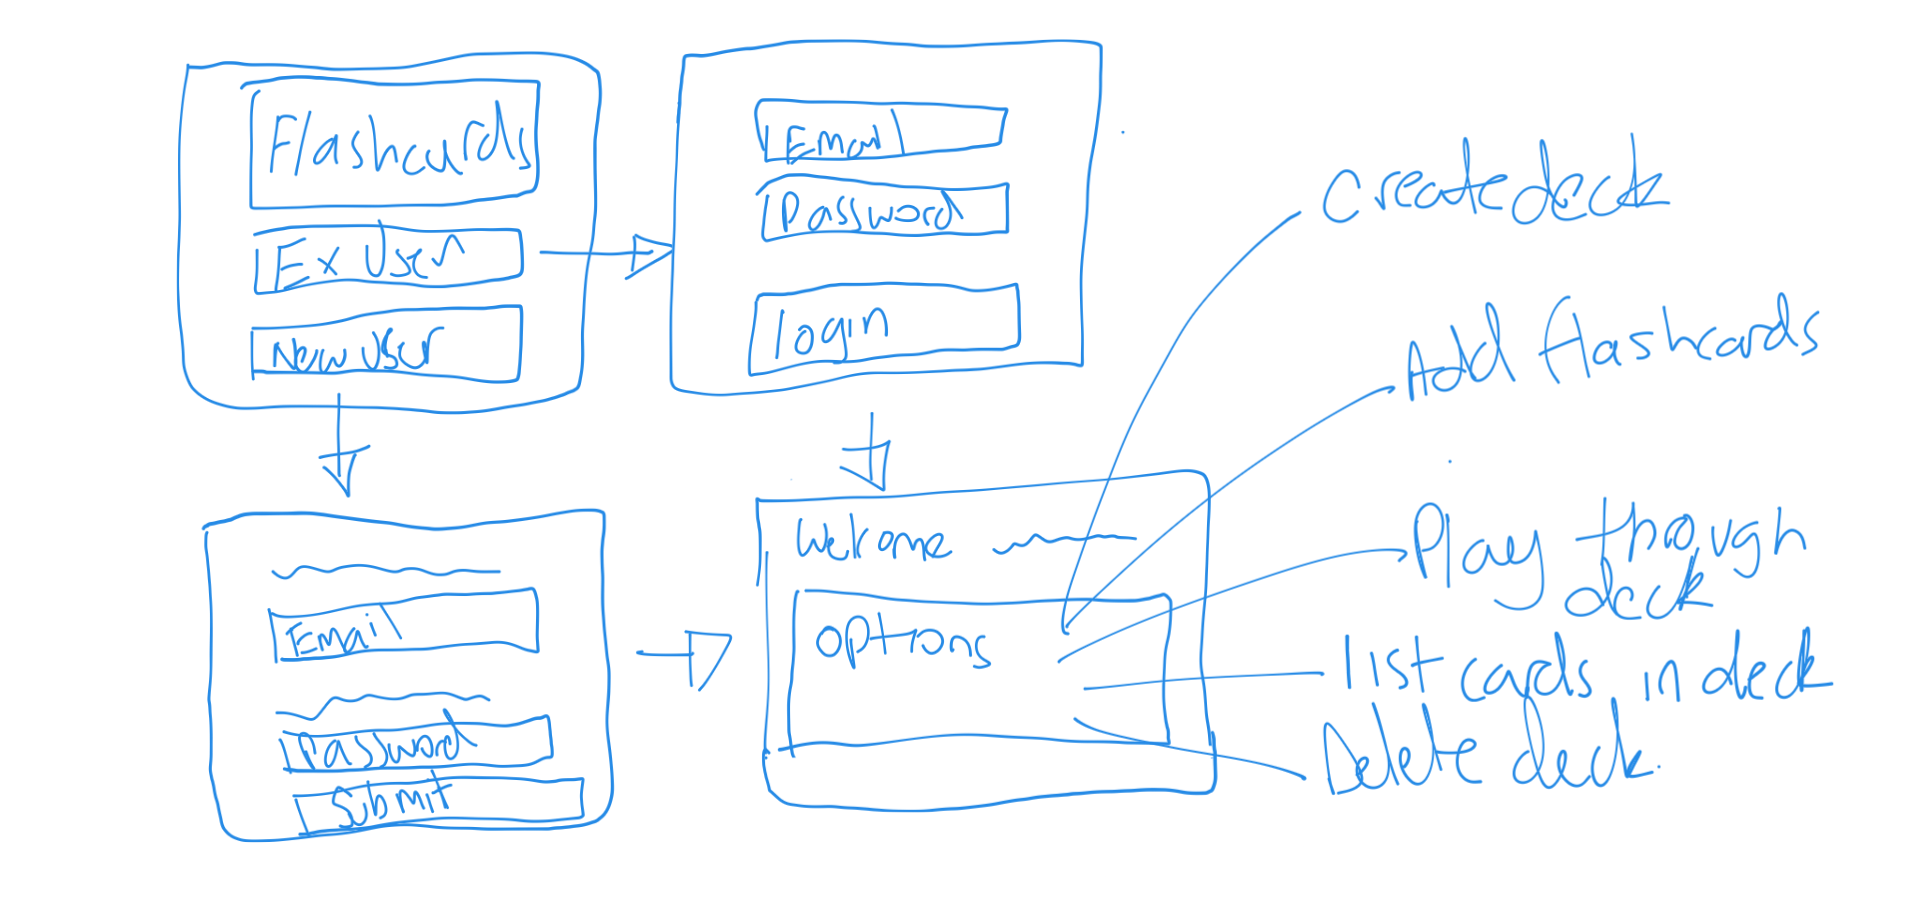 Flashcards
Ex User
New User
Email
Password
login
Email
Password
Submit
Welcome
options
Create deck
Add flashcards
Play though
deck
list cards in deck
Delete deck.